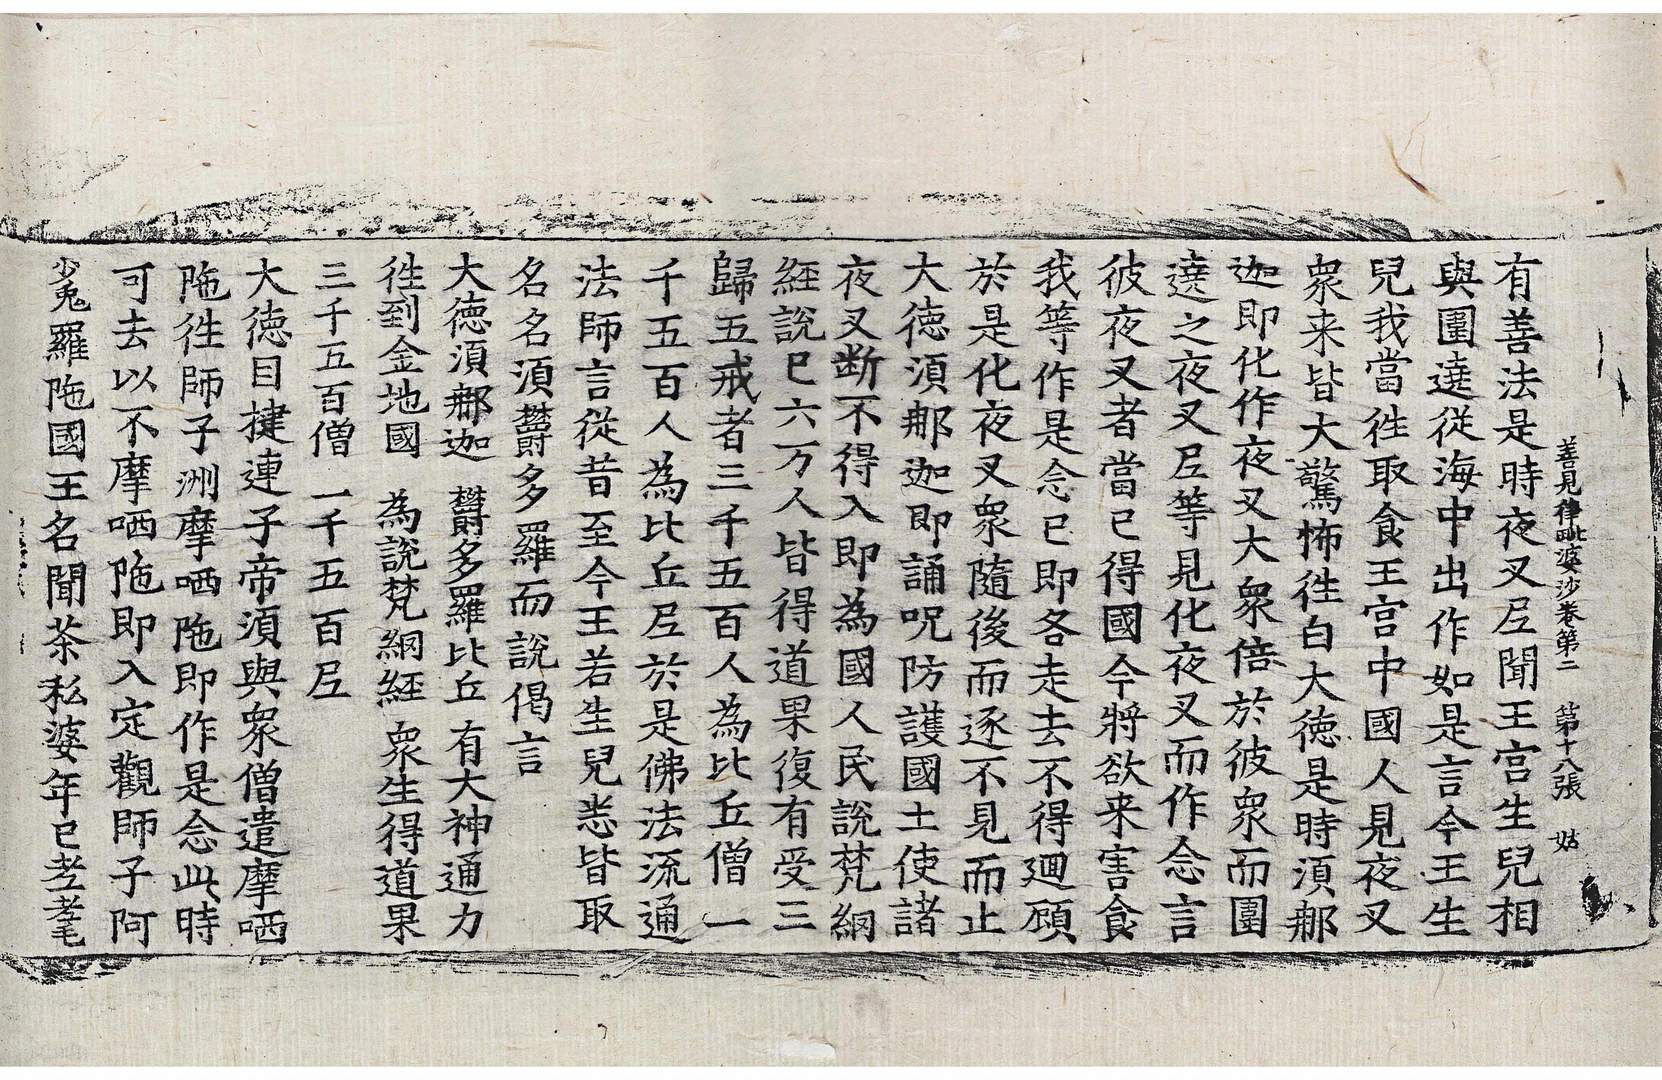 善見律毗婆沙卷第二　第十八張　姑
有善法是時夜叉尼聞王宮生兒相
與圍遶從海中出作如是言今王生
兒我當往取食王宮中國人見夜叉
衆来皆大驚怖往白大德是時湏那
迦即化作夜叉大衆倍於彼衆而圍
遶之夜叉尼等見化夜叉而作念言
彼夜叉者當已得國今將欲来害食
我等作是念已即各走去不得迴顧
於是化夜叉衆隨後而逐不見而止
大德湏那迦即誦呪防護國土使諸
夜叉断不得入即為國人民說梵網
經說已六万人皆得道果復有受三
歸五戒者三千五百人為比丘僧一
千五百人為比丘尼於是佛法流通
法師言從昔至今王若生兒悉皆取
名名湏欝多羅而說偈言
大德湏那迦　欝多羅比丘　有大神通力
往到金地國　為說梵網經　衆生得道果
三千五百僧　一千五百尼
大德目揵連子帝湏與衆僧遣摩哂
陁往師子洲摩哂陁即作是念此時
可去以不摩哂陁即入定觀師子阿
㝹羅陁國王名聞茶私婆年已老耄